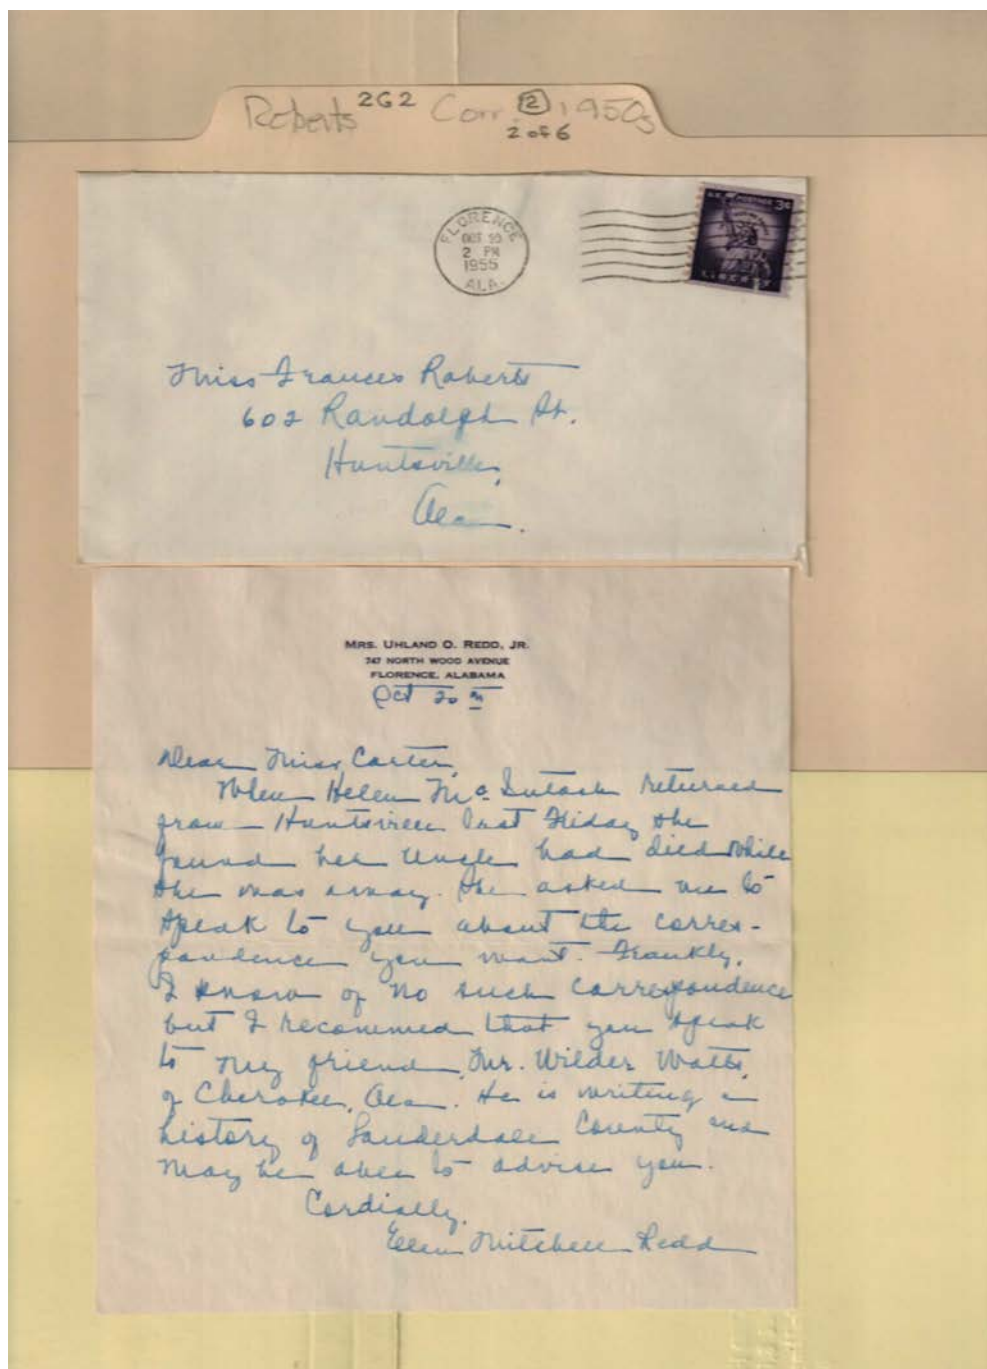 Roberts 2G2 Corr. 2 1950s
2 of 6
FLORENCE
OCT
2 PM
1955
ALA.
U.S. POSTAGE 3¢
LIBERTY
Miss Frances Roberts
602 Randolph St.
Huntsville,
Ala.
MRS. UHLAND O. REDD, JR.
747 NORTH WOOD AVENUE
FLORENCE, ALABAMA
Oct 20th
Dear Miss Carter,
When Helen Mc Intosh returned
from Huntsville last Friday she
found her Uncle had died while
she was away. She asked me to
speak to you about the corres-
pondence you want. Frankly,
I know of no such correspondence
but I recommed that you speak
to my friend, Mr. Wilder Watts,
of Cherokee, Ala. He is writing a
history of Lauderdale County and
may be able to advise you.
Cordially,
Ellen Mitchell Redd